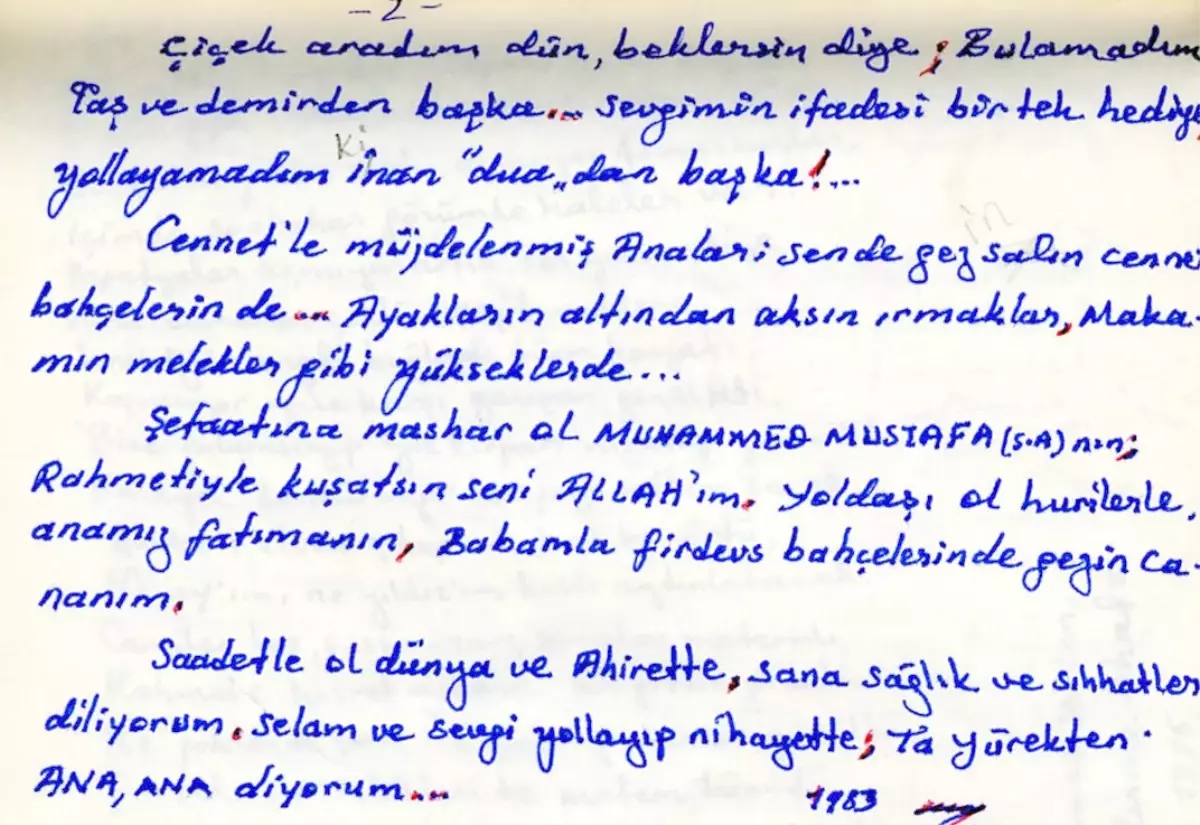 - 2 -
Çiçek aradım dün, beklersin diye; Bulamadım
Taş ve demirden başka... Sevgimin ifadesi bir tek hediye
ki
yollayamadım inan "dua„dan başka!...
Cennet'le müjdelenmiş Anaları; sende gez salın cennet
bahçelerin de... Ayakların altından aksın ırmaklar, Maka-
mın melekler gibi yükseklerde...
Şefaatına mashar ol MUHAMMED MUSTAFA (S.A) nın;
Rahmetiyle kuşatsın seni ALLAH'ım. Yoldaşı ol hurilerle,
anamız fatımanın, Babamla firdevs bahçelerinde gezin Ca-
nanım.
Saadetle ol dünya ve Ahirette, sana sağlık ve sıhhatler
diliyorum. Selam ve sevgi yollayıp nihayette; Ta yürekten
ANA, ANA diyorum...
1983